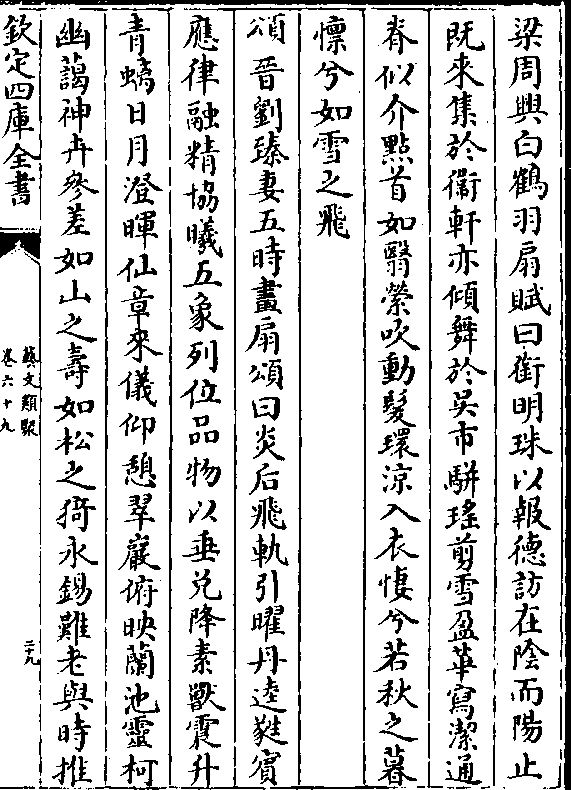 梁周興白鶴羽扇賦曰銜明珠以報德訪在陰而陽止
既來集於衞軒亦傾舞於吳市駢瑤剪雪盈華寫潔通
脊似介點首如翳縈吹動髮環涼入衣悽兮若秋之暮
懍兮如雪之飛
頌晉劉臻妻五時畫扇頌曰炎后飛軌引曜丹逵蕤賓
應律融精協曦五象列位品物以垂兑降素獸震升
青螭日月澄暉仙章來儀仰憩翠巖俯映蘭池靈柯
幽藹神卉參差如山之壽如松之猗永錫難老與時推
欽定四庫全書
藝文類聚
卷六十九
二十九